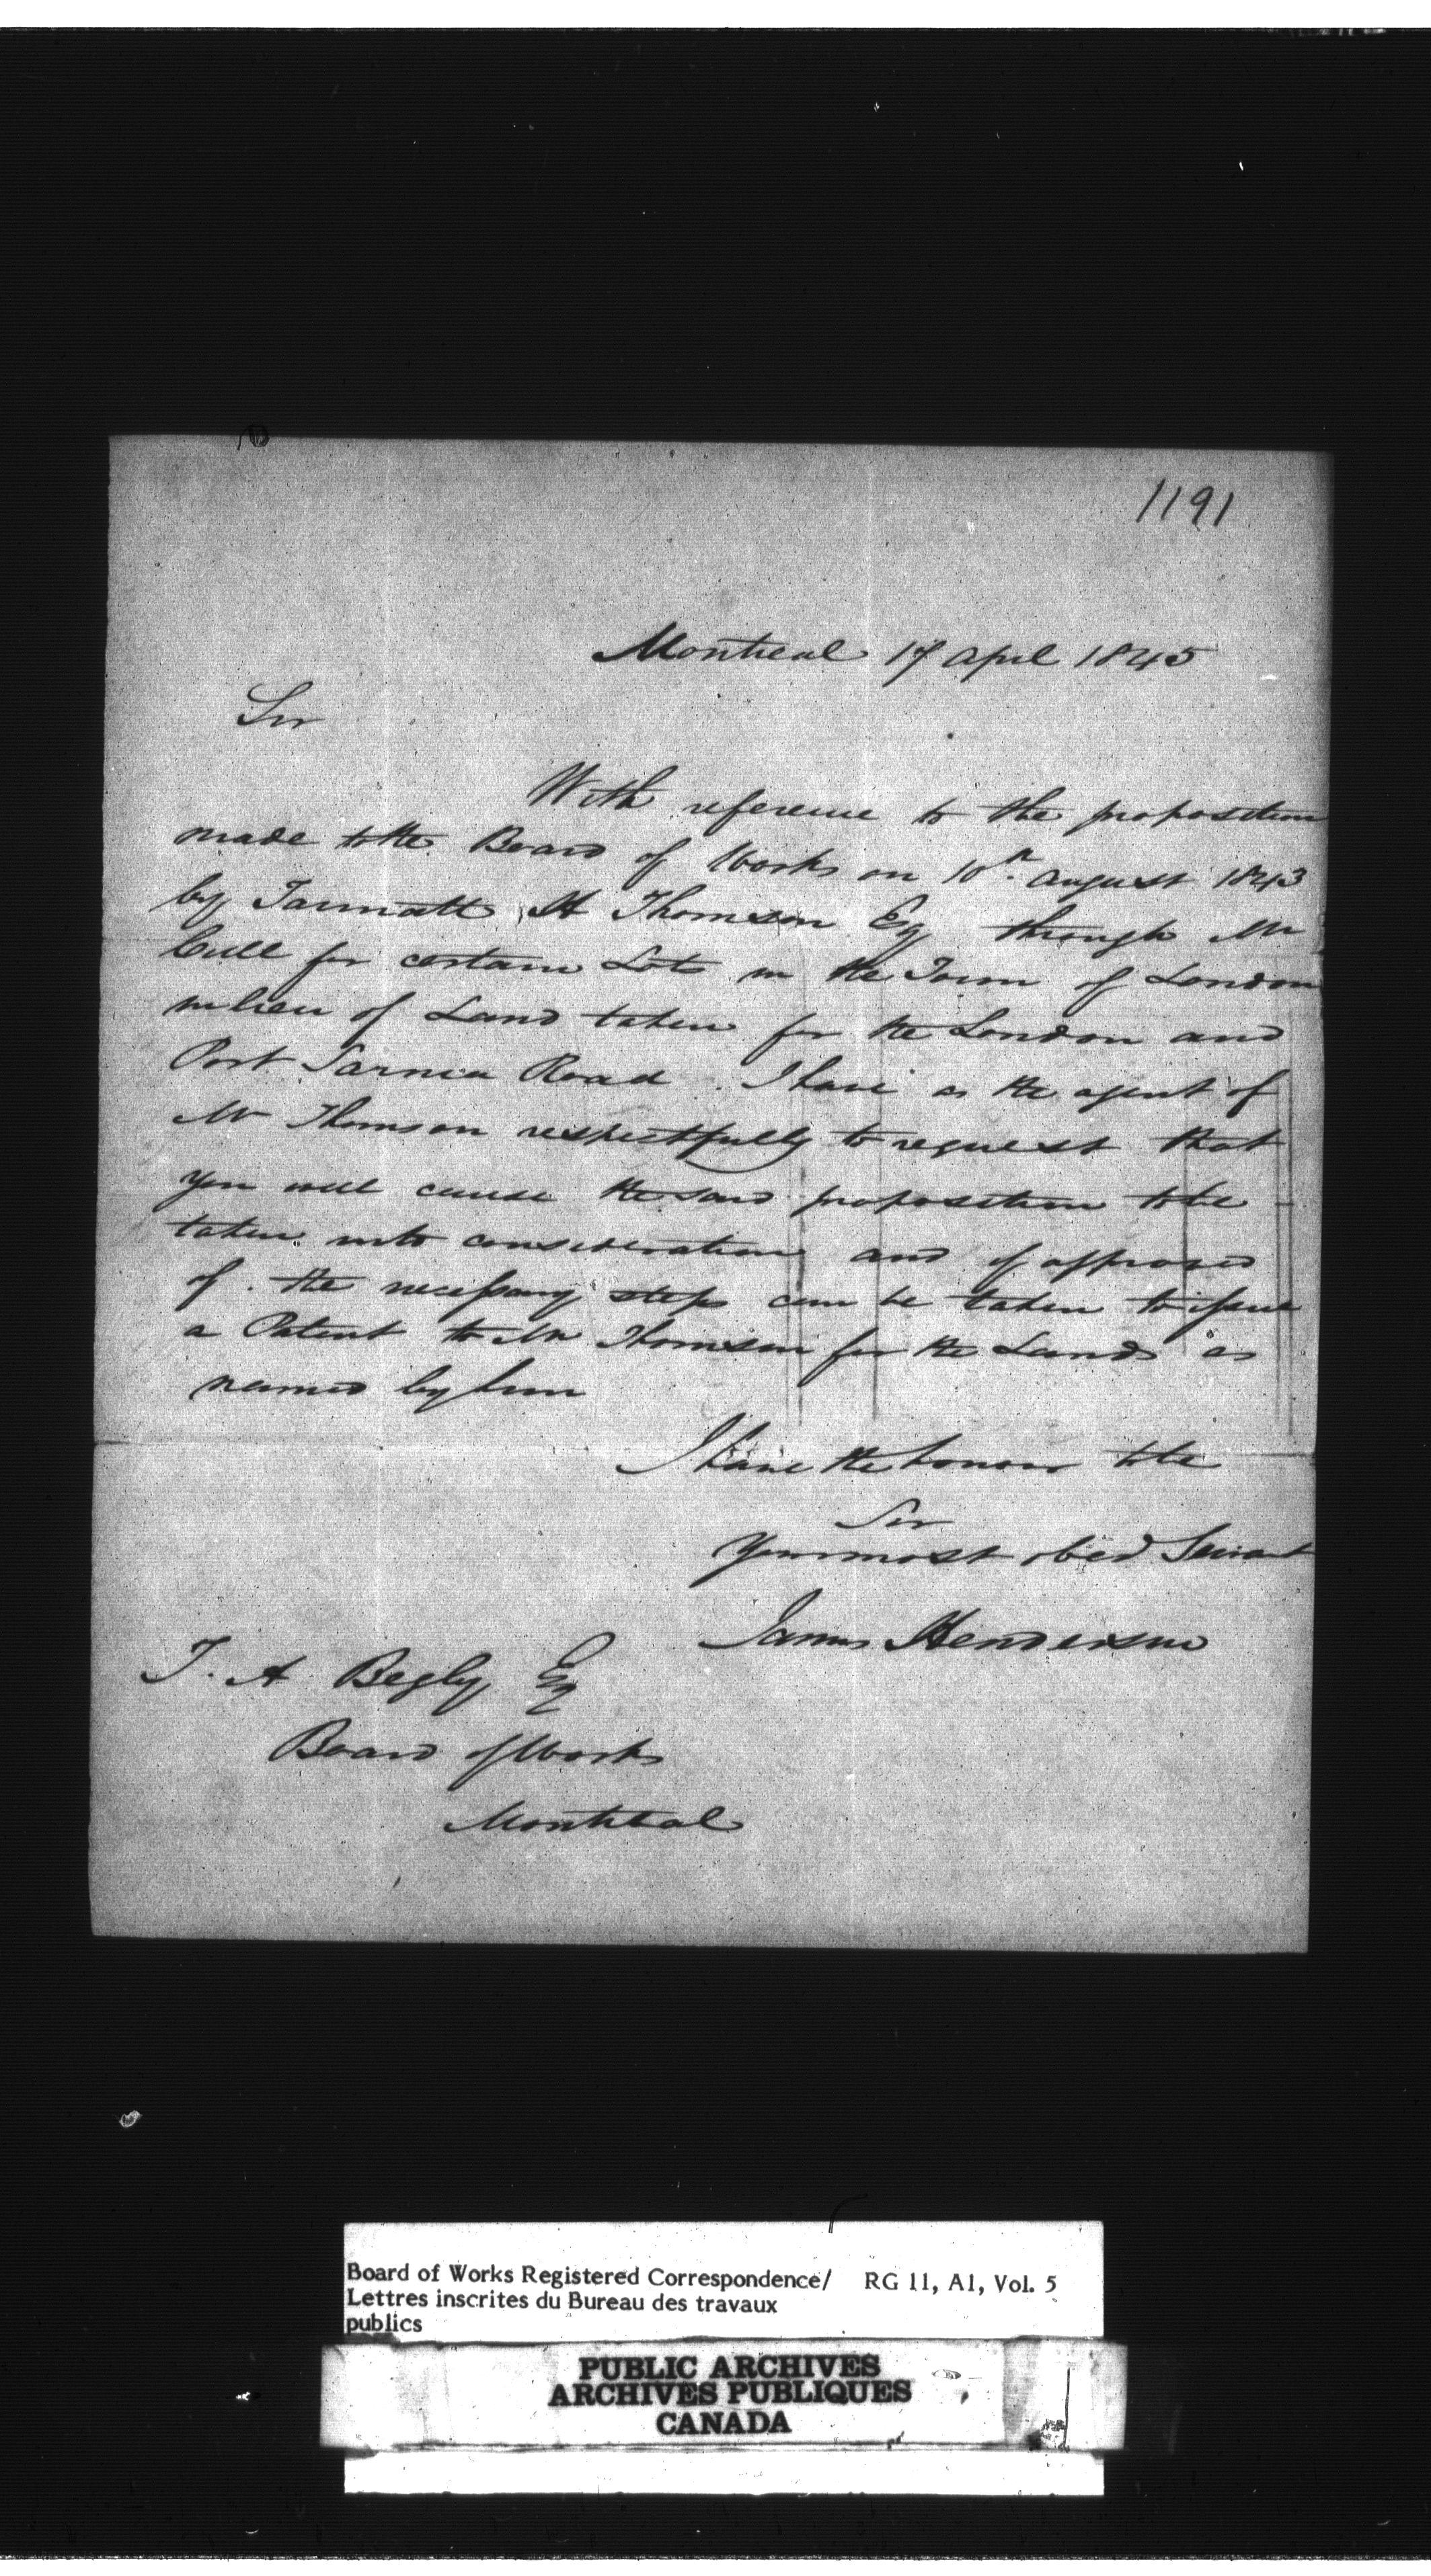 1191
Montreal 17 April 1845
Sir
With reference to the proposition
made to the Board of Works on 10th August 1843
by Tannatt H Thomson Esq through Mr
Cull for certain Lots in the Town of London
in lieu of Land taken for the London and
Port Sarnia Road. I have as the agent of
Mr Thomson respectfully to request that
you will cause the said proposition to be
taken into consideration and if approved
of. the necessary steps can be taken to issue
a Patent to Mr Thomson for the Lands as
named by him
I have the honour to be
Sir
Your most obed Servant
James Henderson
T. A Begly Esq
Board of Works
Montreal
Board of Works Registered Correspondence/ RG 11, A1, Vol. 5
Lettres inscrites du Bureau des travaux
publics
PUBLIC ARCHIVES
ARCHIVES PUBLIQUES
CANADA